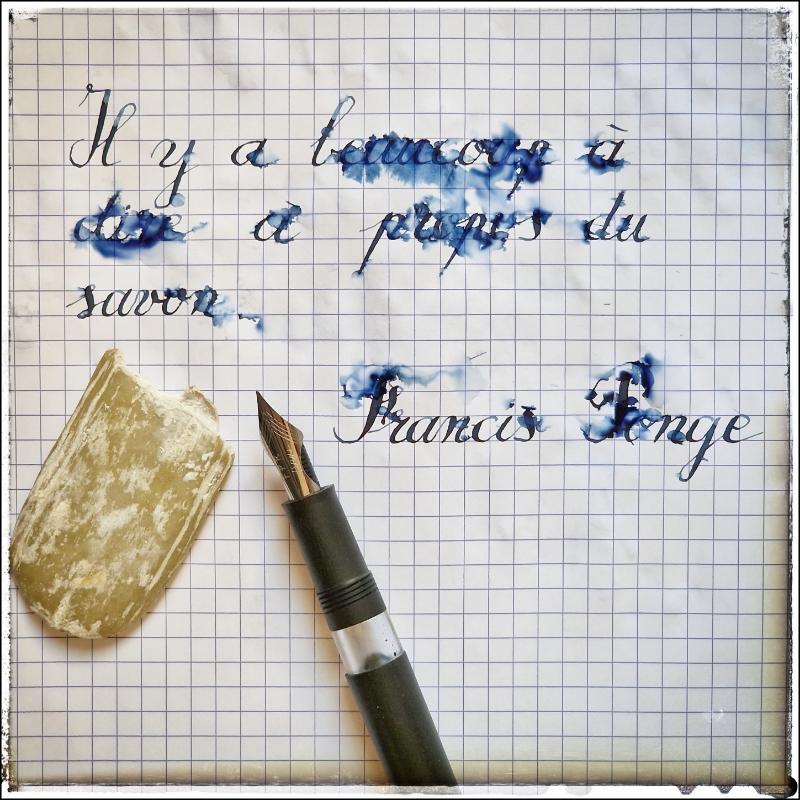 Il y a beaucoup à
dire à propos du
savon.
Francis Ponge